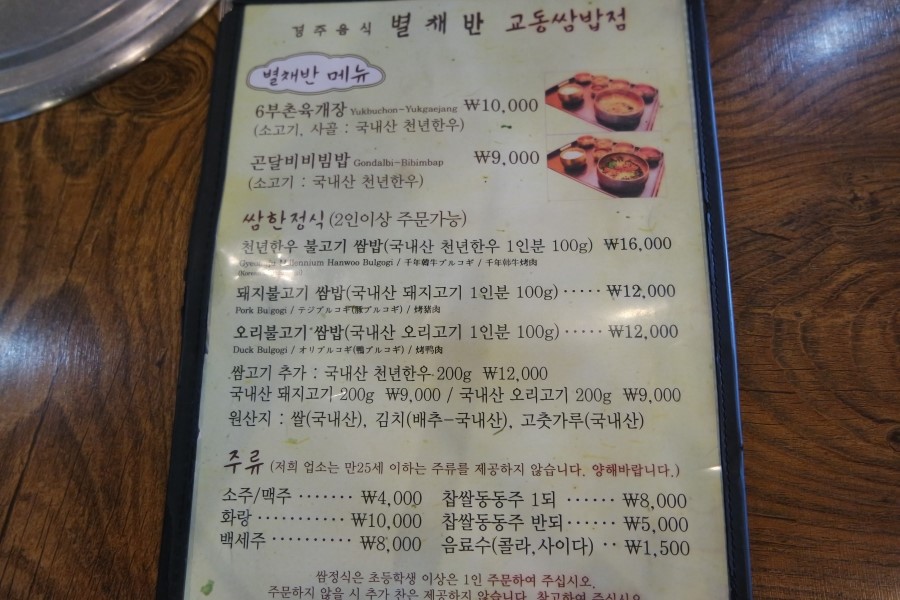 경주음식 별채반 교동쌈밥점
별채반 메뉴
6부촌육개장 Yukbuchon-Yukgaejang ₩10,000
(소고기, 사골 : 국내산 천년한우)
곤달비비빔밥 Gondalbi-Bibimbap ₩9,000
(소고기 : 국내산 천년한우)
쌈한정식 (2인이상 주문가능)
천년한우 불고기 쌈밥(국내산 천년한우 1인분 100g) ₩16,000
Millennium Hanwoo Bulgogi / 千年韓牛プルコギ / 千年韩牛烤肉
돼지불고기 쌈밥(국내산 돼지고기 1인분 100g) ····· ₩12,000
Pork Bulgogi / テジプルコギ(豚プルコギ) / 烤猪肉
오리불고기 쌈밥(국내산 오리고기 1인분 100g) ····· ₩12,000
Duck Bulgogi / オリプルコギ(鴨プルコギ) / 烤鸭肉
쌈고기 추가 : 국내산 천년한우 200g ₩12,000
국내산 돼지고기 200g ₩9,000 / 국내산 오리고기 200g ₩9,000
원산지 : 쌀(국내산), 김치(배추-국내산), 고춧가루(국내산)
주류 (저희 업소는 만25세 이하는 주류를 제공하지 않습니다. 양해바랍니다.)
소주/맥주 ······· ₩4,000 찹쌀동동주 1되 ······ ₩8,000
화랑 ··········· ₩10,000 찹쌀동동주 반되 ······ ₩5,000
백세주 ·········· ₩8,000 음료수(콜라,사이다) ·· ₩1,500
쌈정식은 초등학생 이상은 1인 주문하여 주십시오.
주문하지 않을 시 추가 찬은 제공하지 않습니다. 참고하여 주십시오